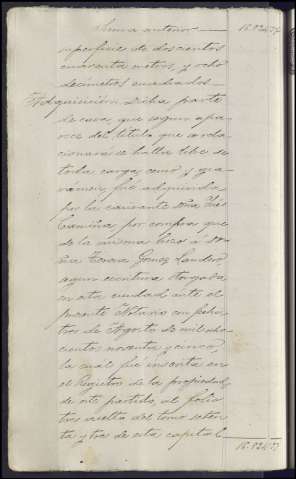 Suma anterior 16.824'77
superficie de doscientos
cuarenta metros y ocho
decímetros cuadrados
Adquisición. Dicha parte
de casa, que según apa-
rece del título que se rela-
cionará se halla libre de
toda carga, censo y gra-
vámen, fué adquirida
por la causante Doña
Camiña por compra que
de la misma hizo á Do-
ña Teresa Gómez
según escritura otorgada
en esta ciudad ante el
presente Notario con fecha
tres de Agosto de mil ocho-
cientos noventa y cinco,
la cuál fué inscrita en
el Registro de la propiedad
de este partido, al folio
tres vuelto del tomo seten-
ta y tres de esta capital
16.824'77